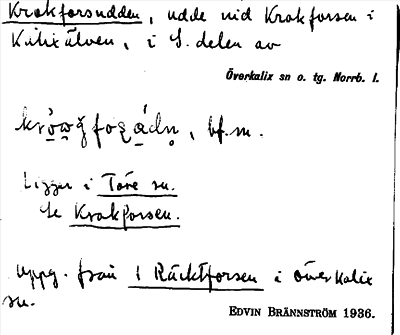 Krokforsudden, udde vid Krokforsen i
Kalixälven, i S. delen av
Överkalix sn o. tg. Norrb. l.
, bf. m.
Ligger i Töre sn.
Se Krokforsen.
Uppg. från 1 Räcktforsen i Överkalix
sn.
EDVIN BRÄNNSTRÖM 1936.